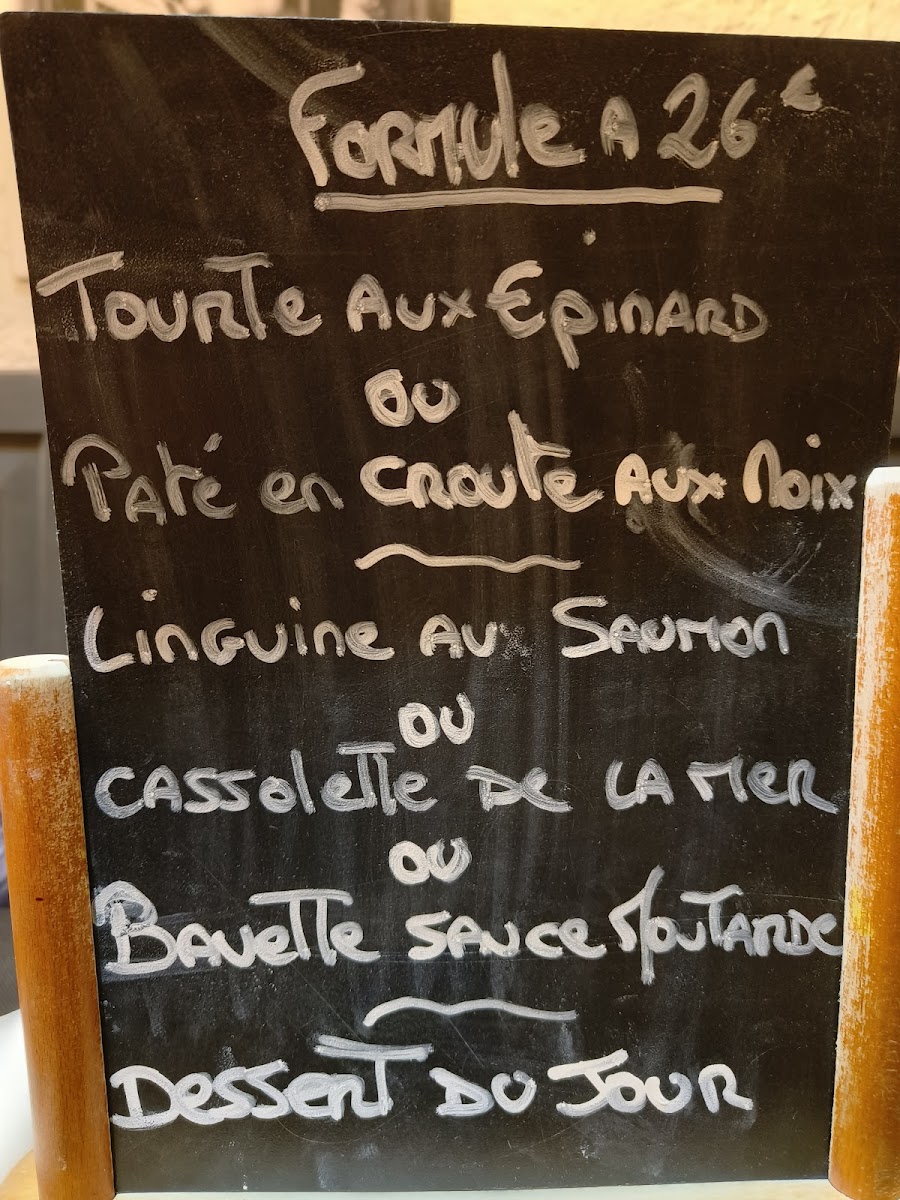 Formule A 26€
Tourte aux Epinard
ou
Paté en croute aux Noix
Linguine au Saumon
ou
Cassolette de la mer
ou
Bavette sauce Moutarde
Dessert du Jour